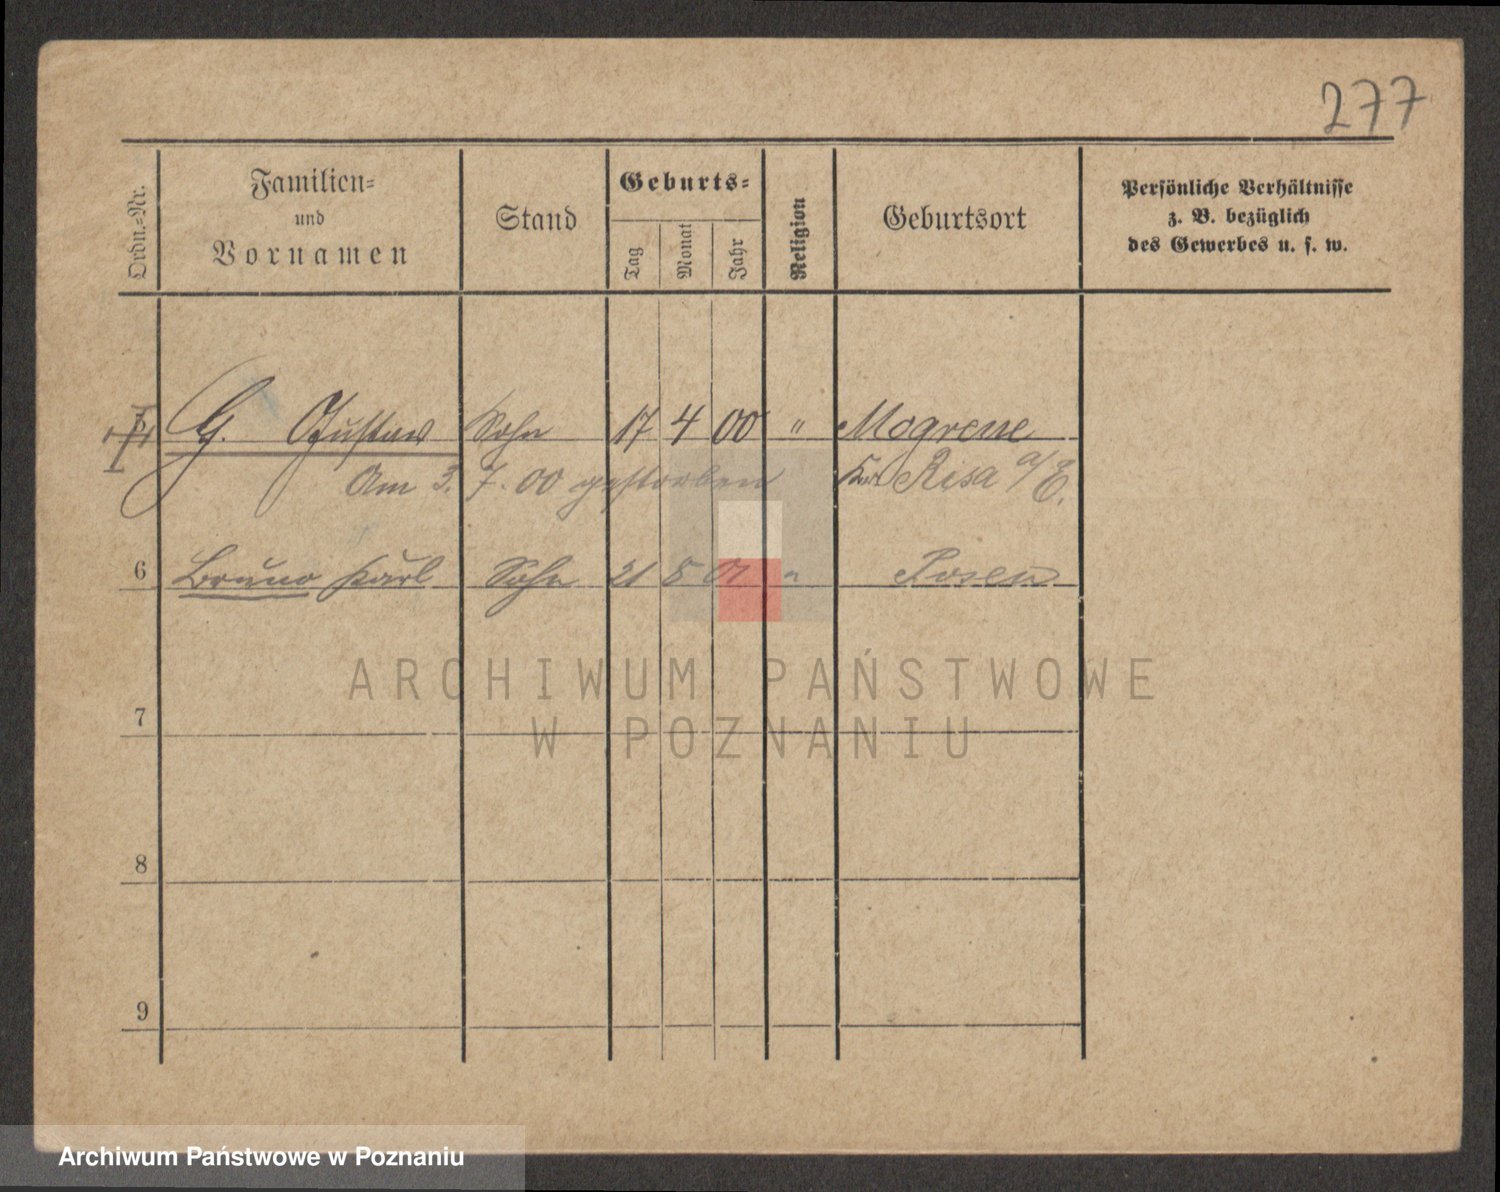 277
Ordn.-Nr.
Familien-
und
Vornamen
Stand
Geburts-
Tag
Monat
Jahr
Religion
Geburtsort
Persönliche Verhältnisse
z. B. bezüglich
des Gewerbes u. s. w.
5 G. Gustav Sohn 17 4 00 " Mogrene
Am 3. 7. 00 gestorben Risa a/E.
6 Bruno Karl Sohn 21 8 01 " Posen
7
8
9
ARCHIWUM PAŃSTWOWE
W POZNANIU
Archiwum Państwowe w Poznaniu